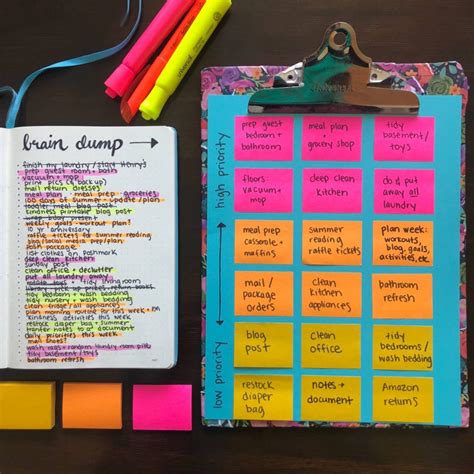 brain dump
finish my laundry/start Henry's
prep guest room + bath
vacuum + mop
print pics (& back up)
mail return dresses
meal plan · meal prep · groceries
100 days of summer - update/plan
toddler meal blog post
kindness printable blog post
weekly goals - workout plan?
10 yr anniversary
raffle tickets for summer reading
blog/social media prep/plan
list clothes on Poshmark
deep clean kitchen
Sunday post
clean office + declutter
put all laundry away
tidy living room
tidy bedrooms + wash bedding
tidy nursery + wash bedding
clean fridge/all appliances
plan morning routine for this week
kindness activities this week
restock diaper bag + summer
transfer notes to a document
daily dreams this week
mail shoes!
tidy basement/toys
bathroom refresh
high priority
low priority
prep guest
bedroom +
bathroom
meal plan
+
grocery shop
tidy
basement/
toys
floors
vacuum +
mop
deep clean
kitchen
do & put
away all
laundry
meal prep
casserole +
muffins
summer
reading
raffle tickets
plan week:
workouts,
blog, goals,
activities, etc.
mail /
package
orders
clean
kitchen
appliances
bathroom
refresh
blog
post
clean
office
tidy
bedrooms/
wash bedding
restock
diaper
bag
notes →
document
Amazon
returns